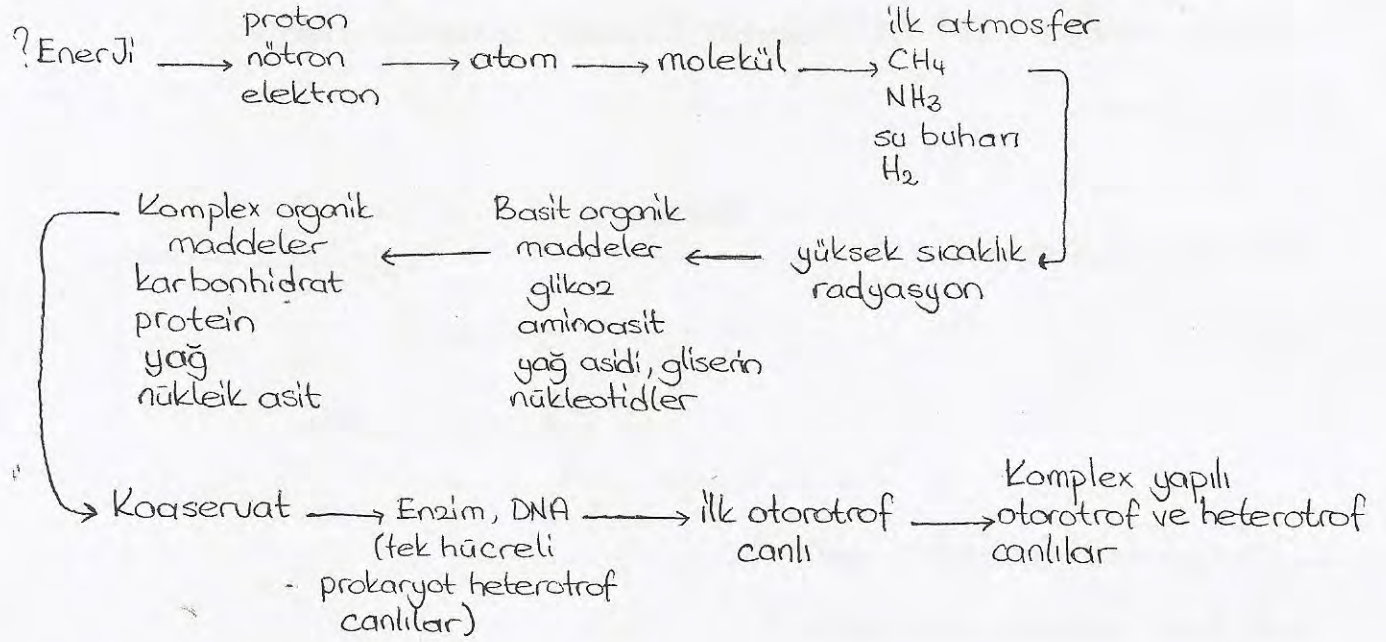 ?EnerJi → proton
nötron
elektron → atom → molekül → ilk atmosfer
CH4
NH3
su buharı
H2
yüksek sıcaklık
radyasyon
Basit organik
maddeler
glikoz
aminoasit
yağ asidi, gliserin
nükleotidler
Komplex organik
maddeler
karbonhidrat
protein
yağ
nükleik asit
Koaservat → Enzim, DNA
(tek hücreli
- prokaryot heterotrof
canlılar) → ilk otorotrof
canlı → Komplex yapılı
otorotrof ve heterotrof
canlılar